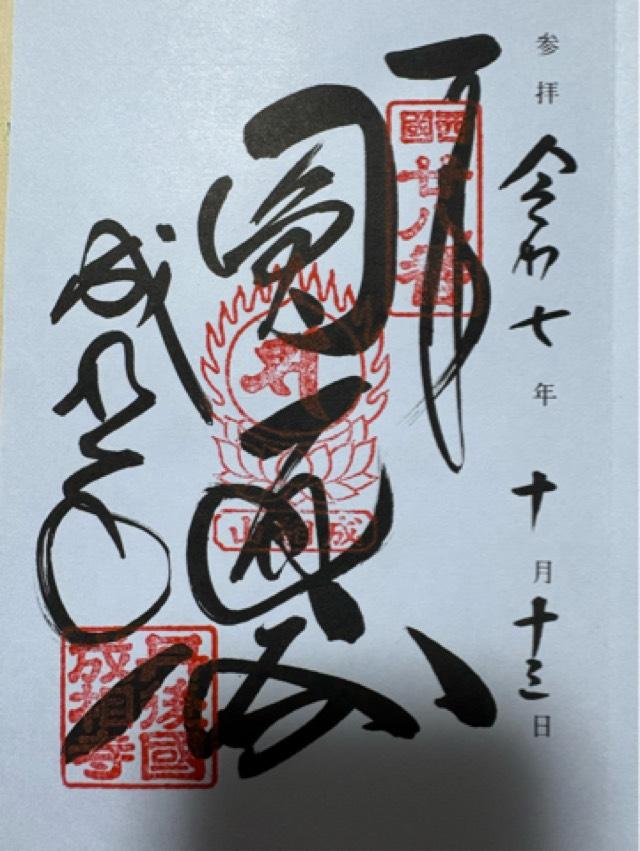 参拝 令和七年十月十三日
奉
西國
廿八番
圓
成相山
成相寺
丹後國
成相寺